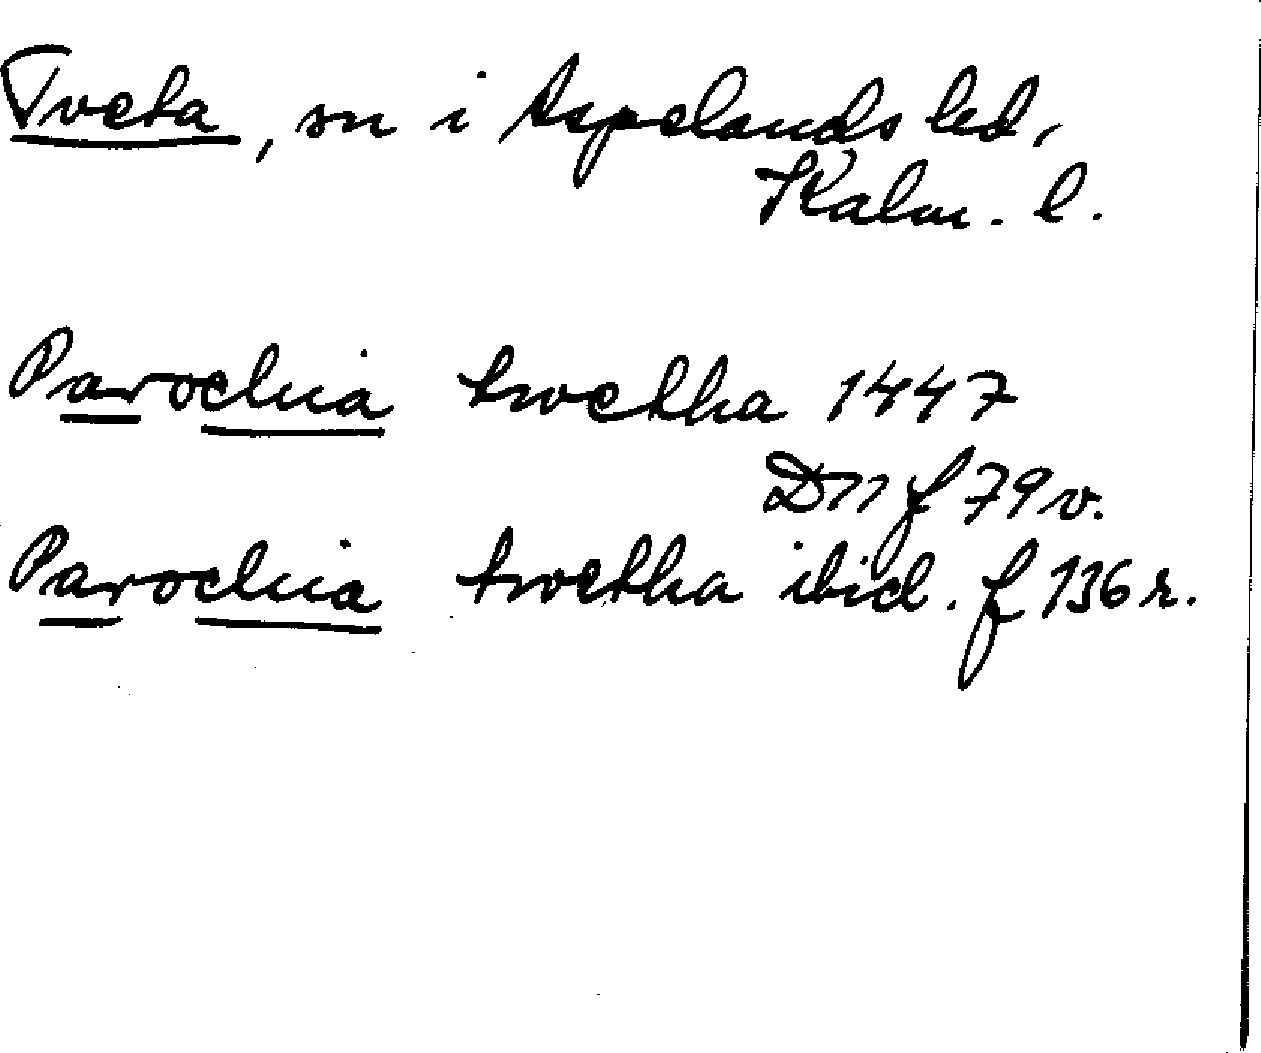 Tveta, sn i Aspelands hd,
Kalm. l.
Parochia twetha 1447
D 11 f 79 v.
Parochia twetha ibid. f 136 r.